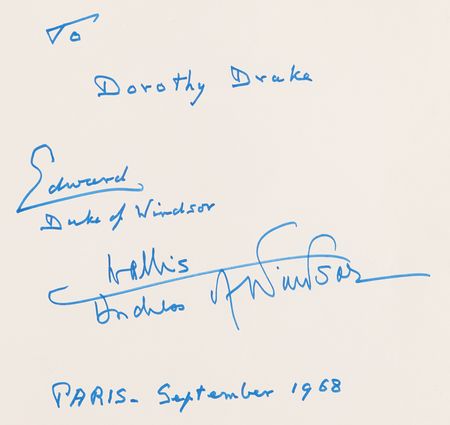 To
Dorothy Drake
Edward
Duke of Windsor
Wallis
Windsor
PARIS - September 1968